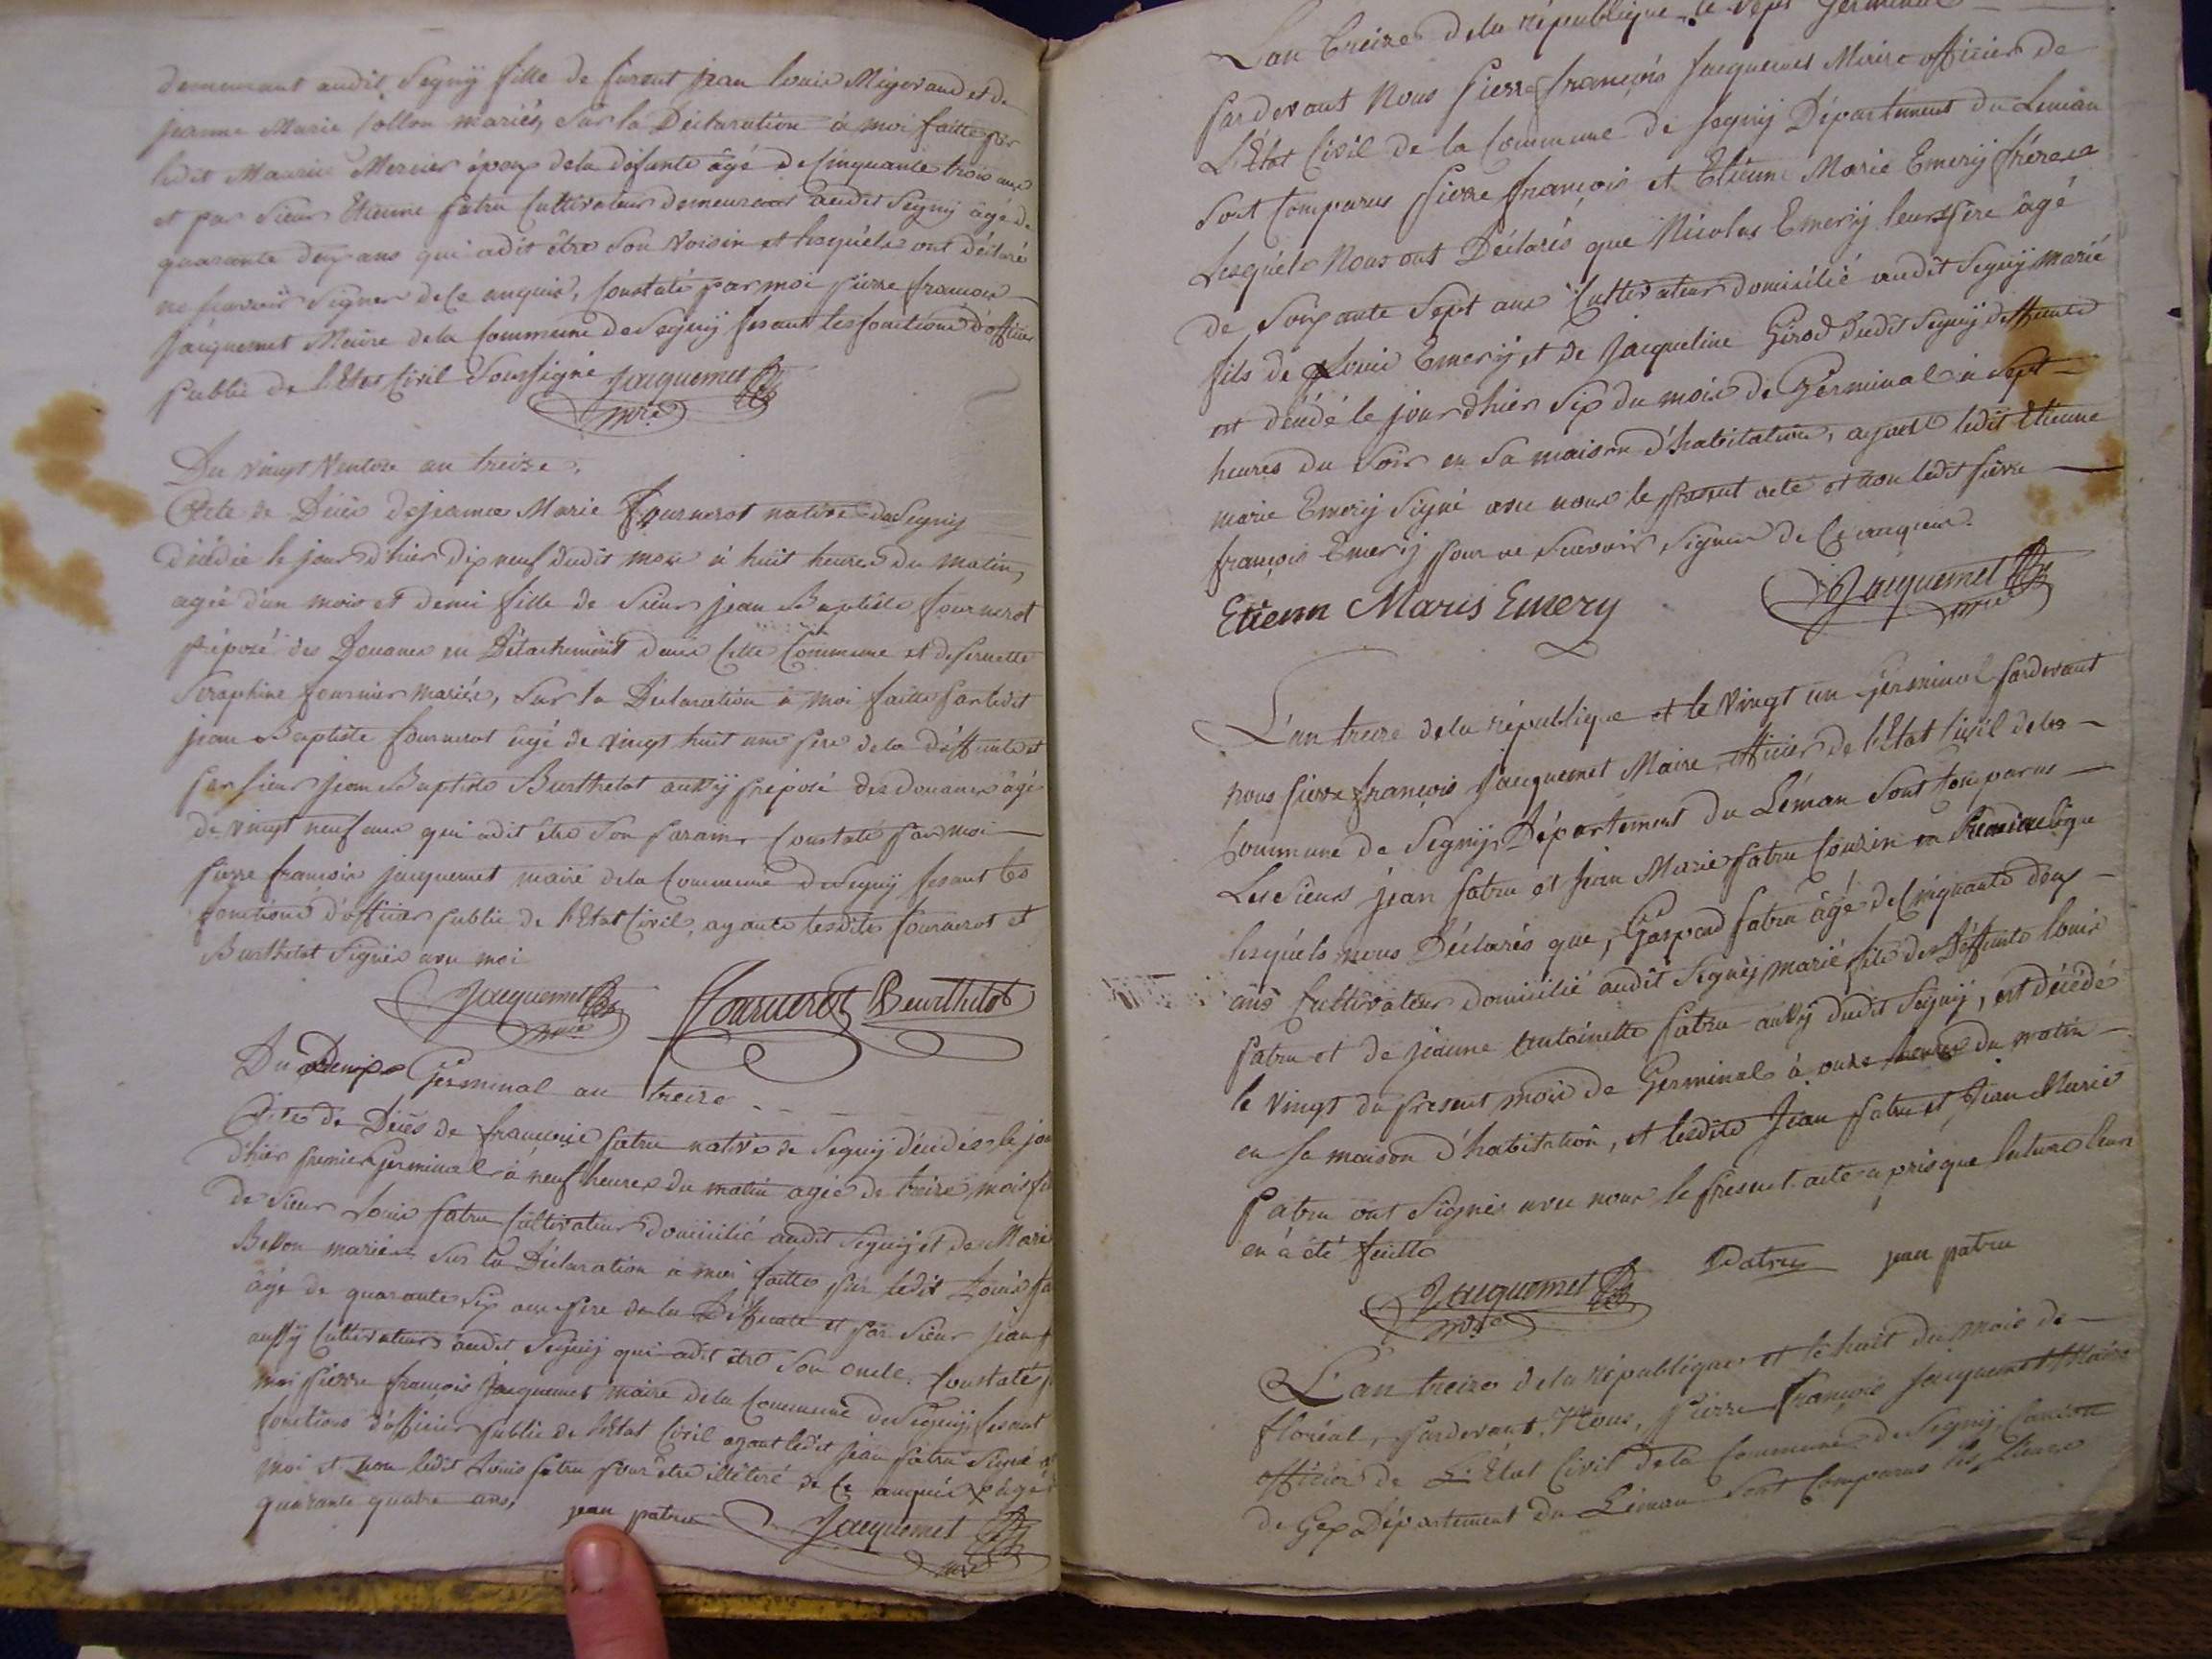 demeurant audit Segnÿ fille de furent jean louis Migorand et de
jeanne Marie Collon mariés, Sur la Déclaration à moi faitte par
ledit Maurice Mercier époux dela défunte âgé de Cinquante trois ans
et par Sieur Etienne patru Cultivateur demeurant audit Segnÿ âgé de
quarante deux ans qui adit être Son voisin et lesquéls ont déclaré
ne scavoir Signer de Ce enquis, Constaté par moi pierre francois
Jacquemet Maire dela Commune de Segnÿ fesant les fonctions d'officier
public de l'Etat Civil Soussigné Jacquemet
mre
Du vingt Ventose an treize,
Acte de Décès de jeanne Marie fournerot native de Segnÿ
décédée le jour d'hier dix neuf dudit mois à huit heures du matin,
agée d'un mois et demi fille de Sieur jean Baptiste fournerot
préposé des Douanes en Détachement dans Cette Commune et de
Seraphine fournier mariés, Sur la Déclaration à moi faitte par ledit
jean Baptiste fournerot agé de vingt huit ans pere dela déffunte et
par Sieur jean Baptiste Burthelot aussÿ préposé des Douanes âgé
de vingt neuf ans qui adit être Son parain Constaté par moi
pierre francois jacquemet maire dela Commune de Segnÿ fesant les
fonctions d'officier public de l'Etat Civil, ayants lesdits fournerot et
Burthelot Signés avec moi
Jacquemet mre Fournerot Beurthelot
Du Deux Germinal an treize
Acte de Décès de francoise patru native de Segnÿ décédée le jour
d'hier premier Germinal à neuf heures du matin agée de treize mois
de Sieur Louis patru Cultivateur domicilié audit Segnÿ et de Marie
Besson mariés Sur la Déclaration à moi faitte par ledit Louis
âgé de quarante Six ans pere de la Déffunte et par Sieur jean
aussÿ Cultivateur audit Segnÿ qui adit être Son oncle, Constaté
moi pierre francois Jacquemet maire dela Commune de Segnÿ fesant
fonctions d'officier public de l'Etat Civil ayant ledit jean patru Signé
moi et non ledit Louis patru pour être illétéré de Ce enquis
quarante quatre ans, jean patru Jacquemet
mre
L'an treize dela république le Sept Germinal
pardevant Nous Pierre françois Jacquemet Maire officier de
L'Etat Civil de la Commune de Segnÿ Département du Leman
Sont Comparus Pierre françois et Etienne Marie Emerÿ frères
Lesquéls Nous ont Déclarés que Nicolas Emerÿ leur père âgé
de Soixante Sept ans Cultivateur domicilié audit Segnÿ marié
fils de Louis Emerÿ et de Jacqueline Girod dudit Segnÿ déffunts
est décédé le jour d'hier Six du mois de Germinal à Sept
heures du Soir en Sa maison d'habitation, ayant ledit Etienne
marie Emerÿ Signé avec nous le present acte et non ledit pierre
françois Emerÿ pour ne Scavoir Signer de Ce enquis.
Etienn Maris Emery Jacquemet
mre
L'an treize dela république et le vingt un Germinal pardevant
nous pierre françois Jacquemet Maire officier de l'Etat Civil dela
Commune de Segnÿ Département du Léman Sont Comparus
Les Sieurs jean patru et Jean Marie patru Cousin en
lesquéls nous Déclarés que, Gaspard patru âgé de Cinquante deux
ans Cultivateur domicilié audit Segnÿ marié, fils de Déffunts louis
patru et de jeanne Antoinette patru aussÿ dudit Segnÿ, est décédé
le vingt du present mois de Germinal à onze heures du matin
en Sa maison d'habitation, et lesdits Jean patru et Jean Marie
patru ont Signés avec nous le present acte apris que lecture leurs
en à été faitte
Jacquemet mre Patru jean patru
L'an treize dela république et le huit du mois de
floréal, pardevant Nous, pierre françois Jacquemet Maire
officier de L'Etat Civil dela Commune de Segnÿ Canton
de Gex Département du Léman Sont Comparus les Sieurs